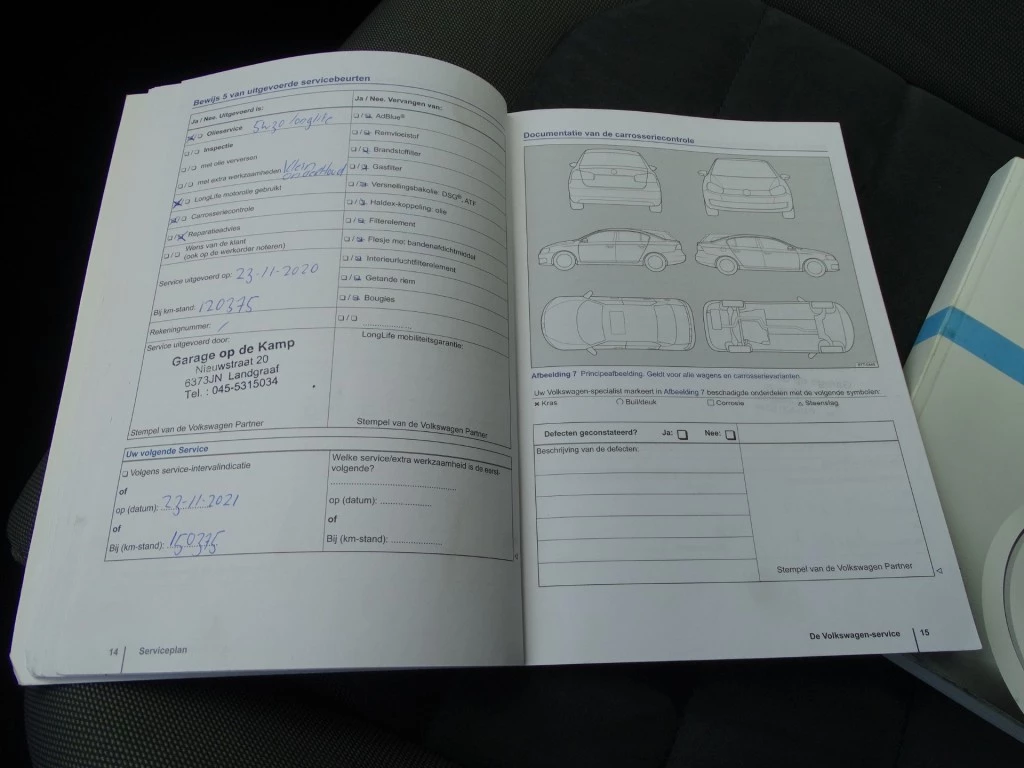 Bewijs 5 van uitgevoerde servicebeurten
Ja / Nee. Uitgevoerd is:
Olieservice 5w30 longlife
Inspectie
met olie verversen
met extra werkzaamheden klein onderhoud
LongLife motorolie gebruikt
Carrosseriecontrole
Reparatieadvies
Wens van de klant
(ook op de werkorder noteren)
Service uitgevoerd op: 23-11-2020
Bij km-stand: 120375
Rekeningnummer: /
Service uitgevoerd door:
Garage op de Kamp
Nieuwstraat 20
6373JN Landgraaf
Tel. : 045-5315034
Stempel van de Volkswagen Partner
Ja / Nee. Vervangen van:
AdBlue®
Remvloeistof
Brandstoffilter
Gasfilter
Versnellingsbakolie DSG®, ATF
Haldex-koppeling: olie
Filterelement
Flesje met bandenafdichtmiddel
Interieurluchtfilterelement
Getande riem
Bougies
LongLife mobiliteitsgarantie:
Stempel van de Volkswagen Partner
Uw volgende Service
Volgens service-intervalindicatie
of
op (datum): 23-11-2021
of
Bij (km-stand): 150375
Welke service/extra werkzaamheid is de eerst-
volgende?
op (datum):
of
Bij (km-stand):
14 Serviceplan
Documentatie van de carrosseriecontrole
Afbeelding 7 Principeafbeelding. Geldt voor alle wagens en carrosserievarianten.
Uw Volkswagen-specialist markeert in Afbeelding 7 beschadigde onderdelen met de volgende symbolen:
Kras Buil/deuk Corrosie Steenslag
Defecten geconstateerd? Ja: Nee:
Beschrijving van de defecten:
Stempel van de Volkswagen Partner
De Volkswagen-service 15